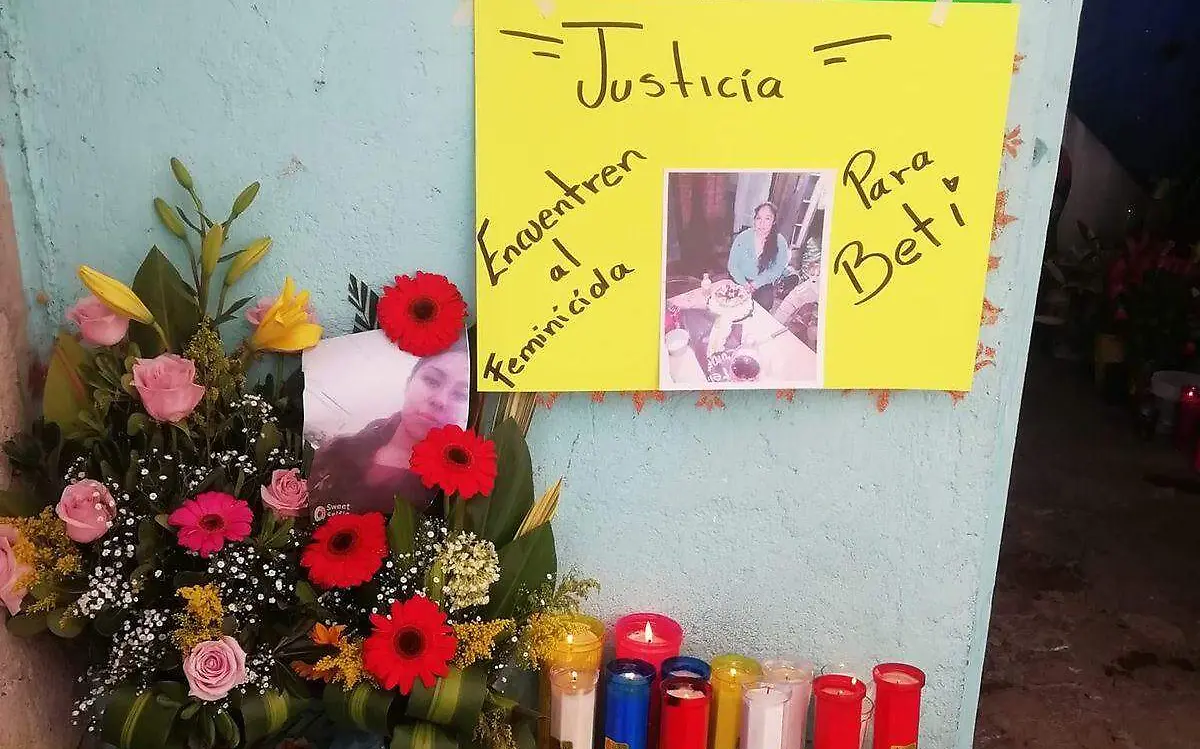 Justicia
Encuentren
al
Feminicida
Para
Beti
Sweet
Selfie